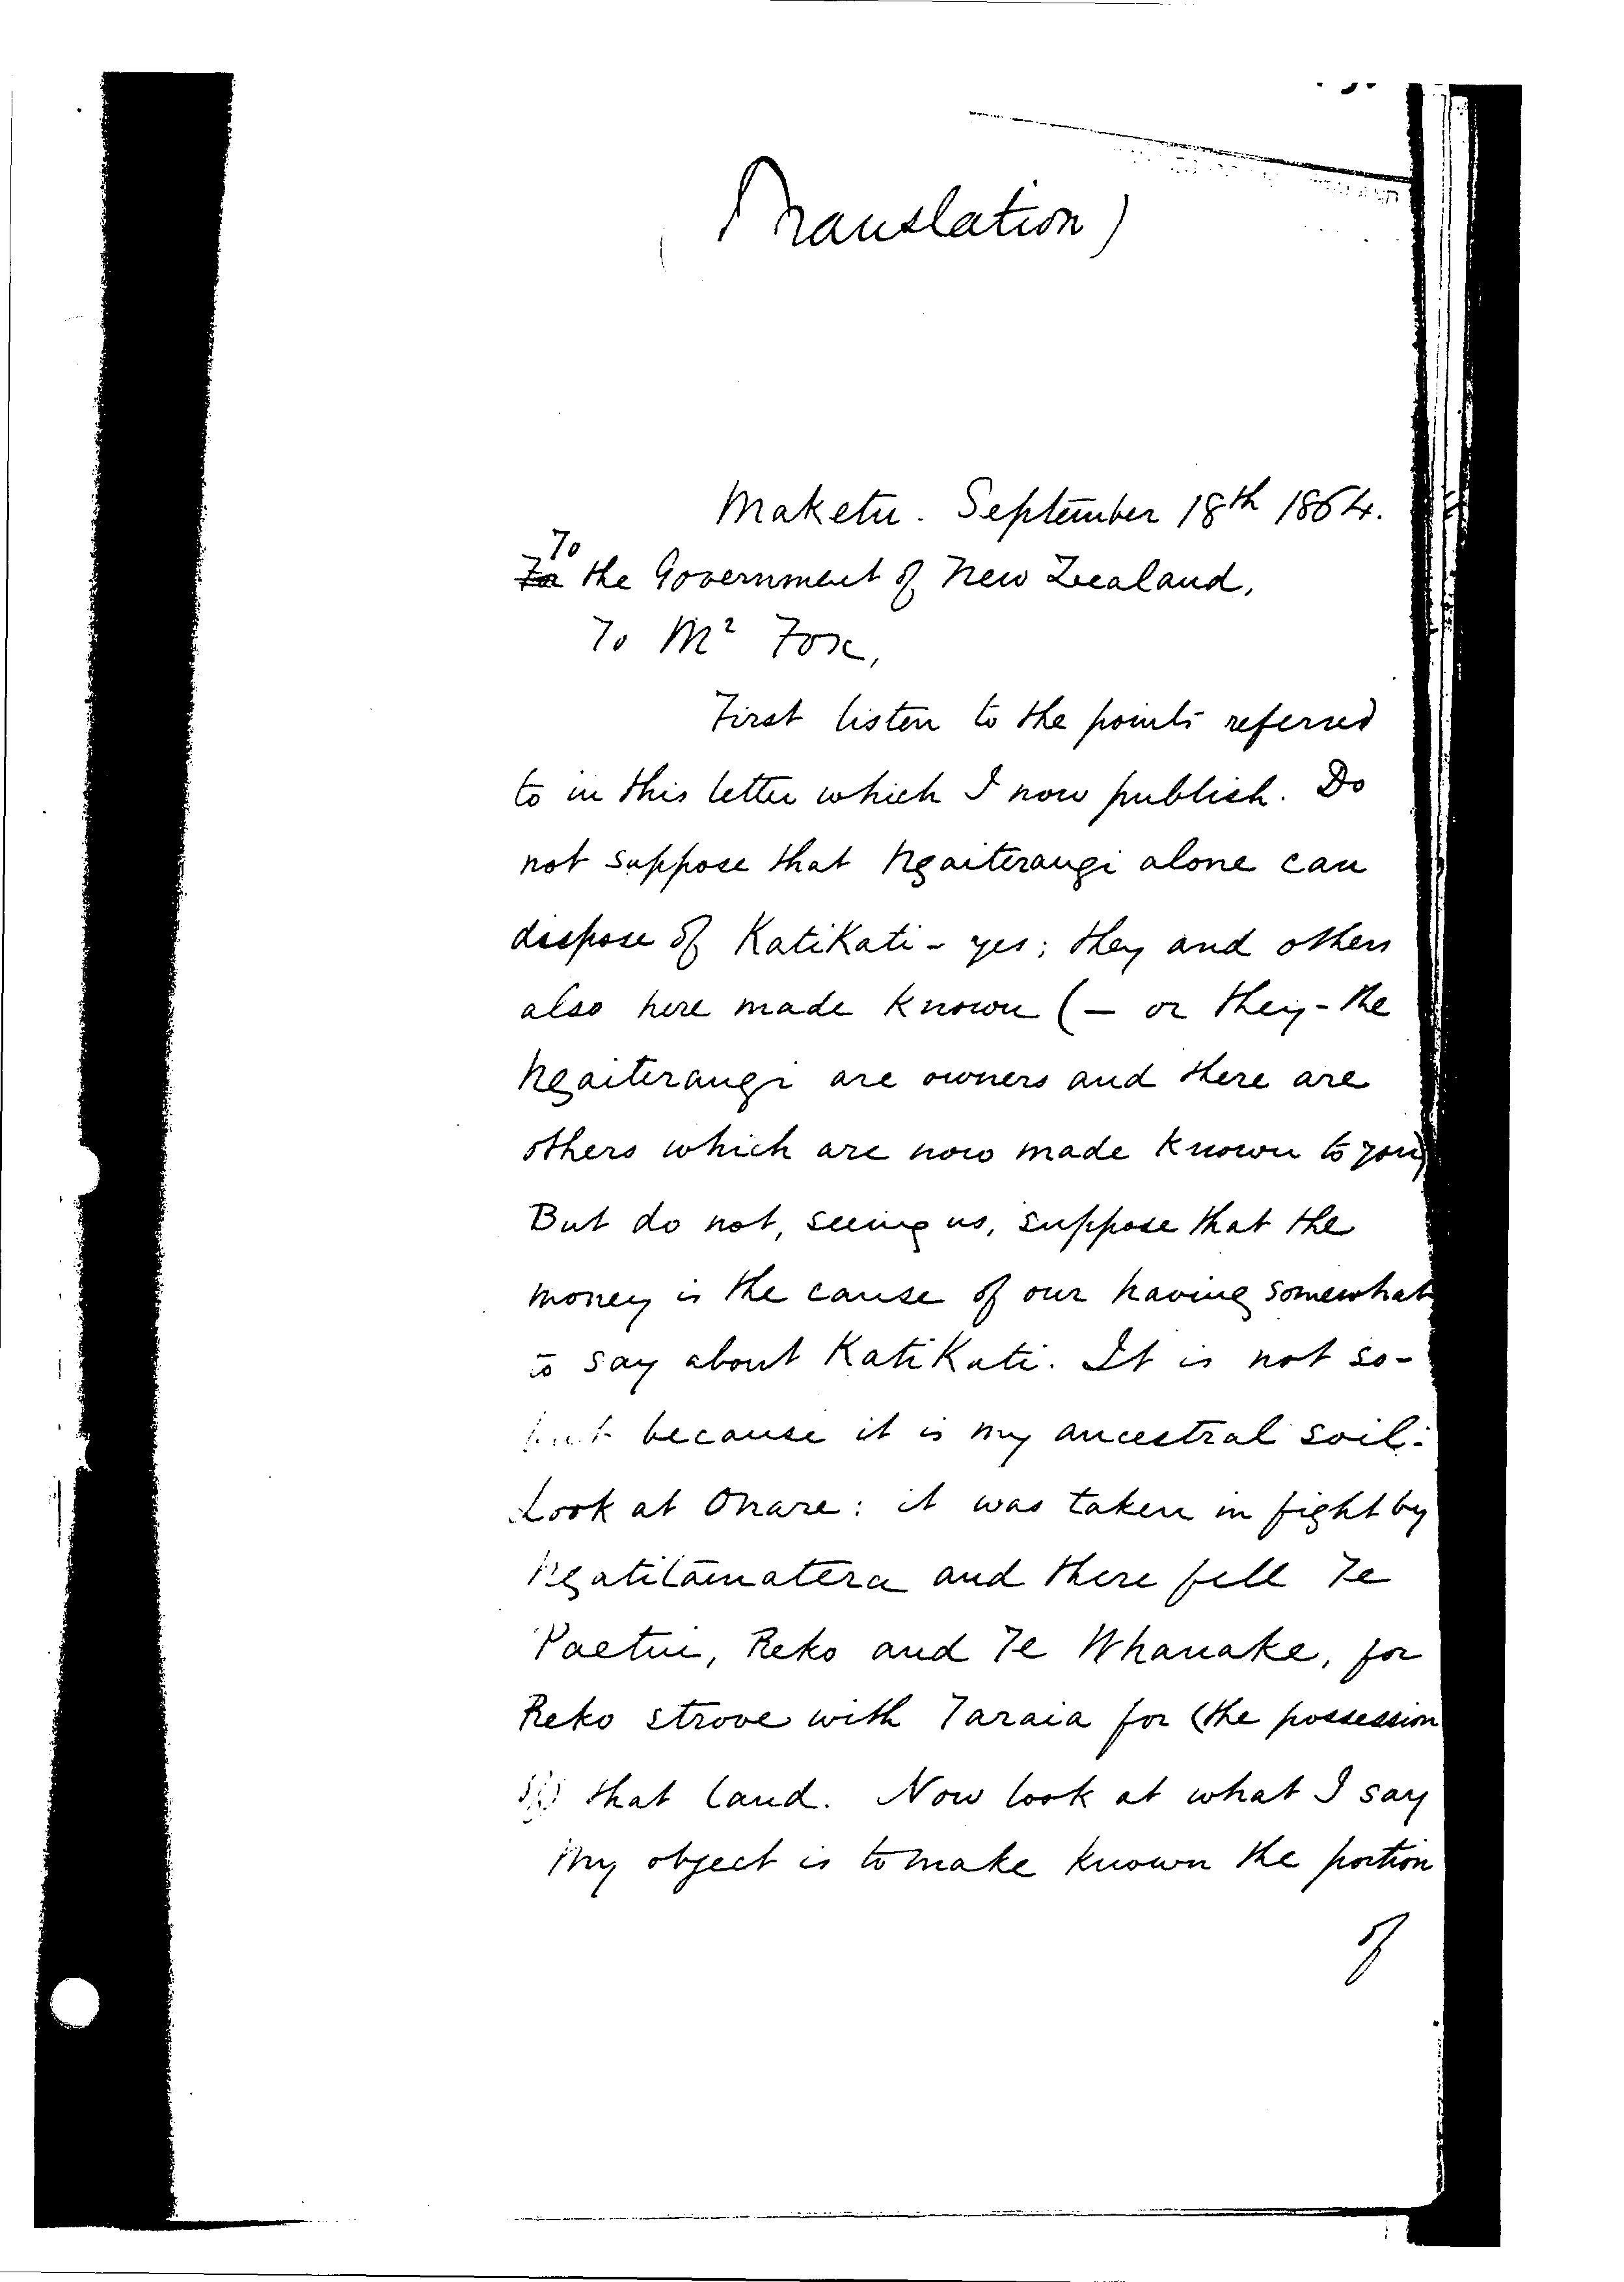 (Translation)
Maketu. September 18th 1864.
To
To the Government of New Zealand,
To Mr Fox,
First listen to the points referred
to in this letter which I now publish. Do
not suppose that Ngaiterangi alone can
dispose of KatiKati - yes; they and others
also here made known (- or they - the
Ngaiterangi are owners and there are
others which are now made known to you)
But do not, seeing us, suppose that the
money is the cause of our having somewhat
to say about KatiKati. It is not so-
but because it is my ancestral soil.
Look at Onare: it was taken in fight by
Ngatitamatera and there fell Te
Paetui, Reko and Te Whanake, for
Reko strove with Taraia for (the possession
of) that land. Now look at what I say
My object is to make known the portion
of